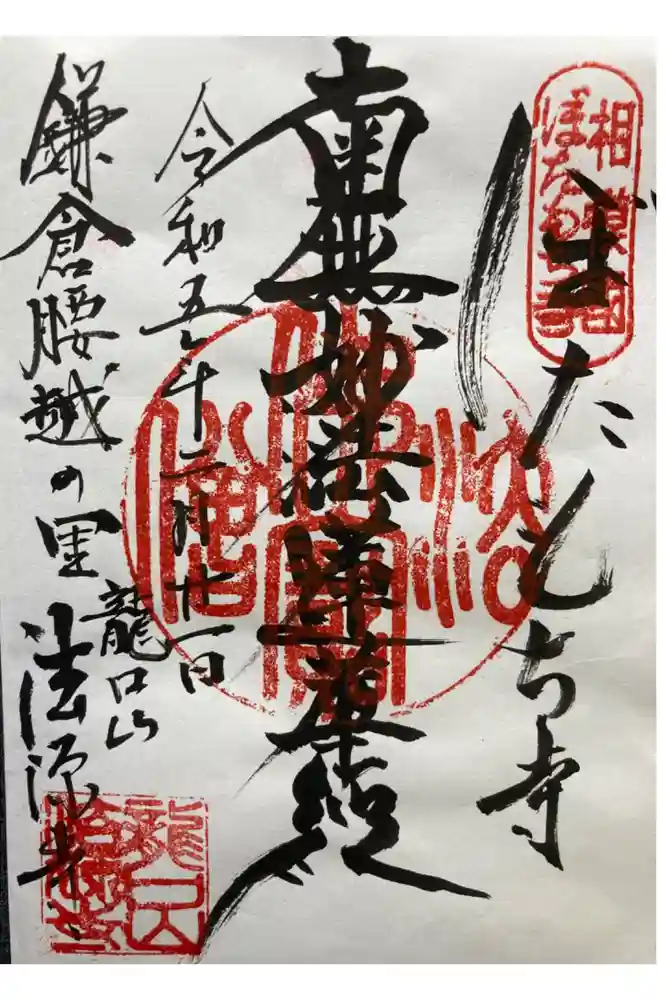 相模国
ぼたもち寺
ぼたもち寺
南無妙法蓮華経
令和五年二月廿一日
鎌倉腰越の里
龍口山
法源寺
龍口山